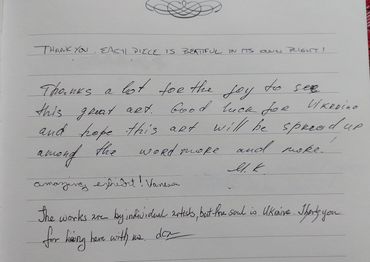 THANK YOU. EACH PIECE IS BEATIFUL IN ITS OWN RIGHT!
Thanks a lot for the joy to see
this great art. Good luck for Ukraine
and hope this art will be spread up
among the word more and more!
M.K.
amazing exhibit! Vanessa
The works are by individual artists, but the soul is Ukraine. Thank you
for being here with us.